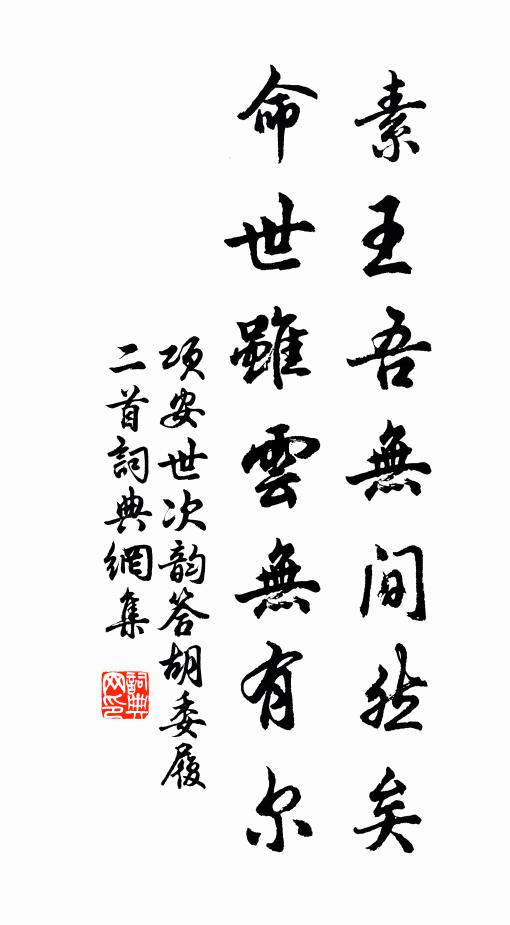 素王吾無間然矣
命世雖雲無有尔
项安世次韵答胡委履
二首詞典網集
詞典
网印